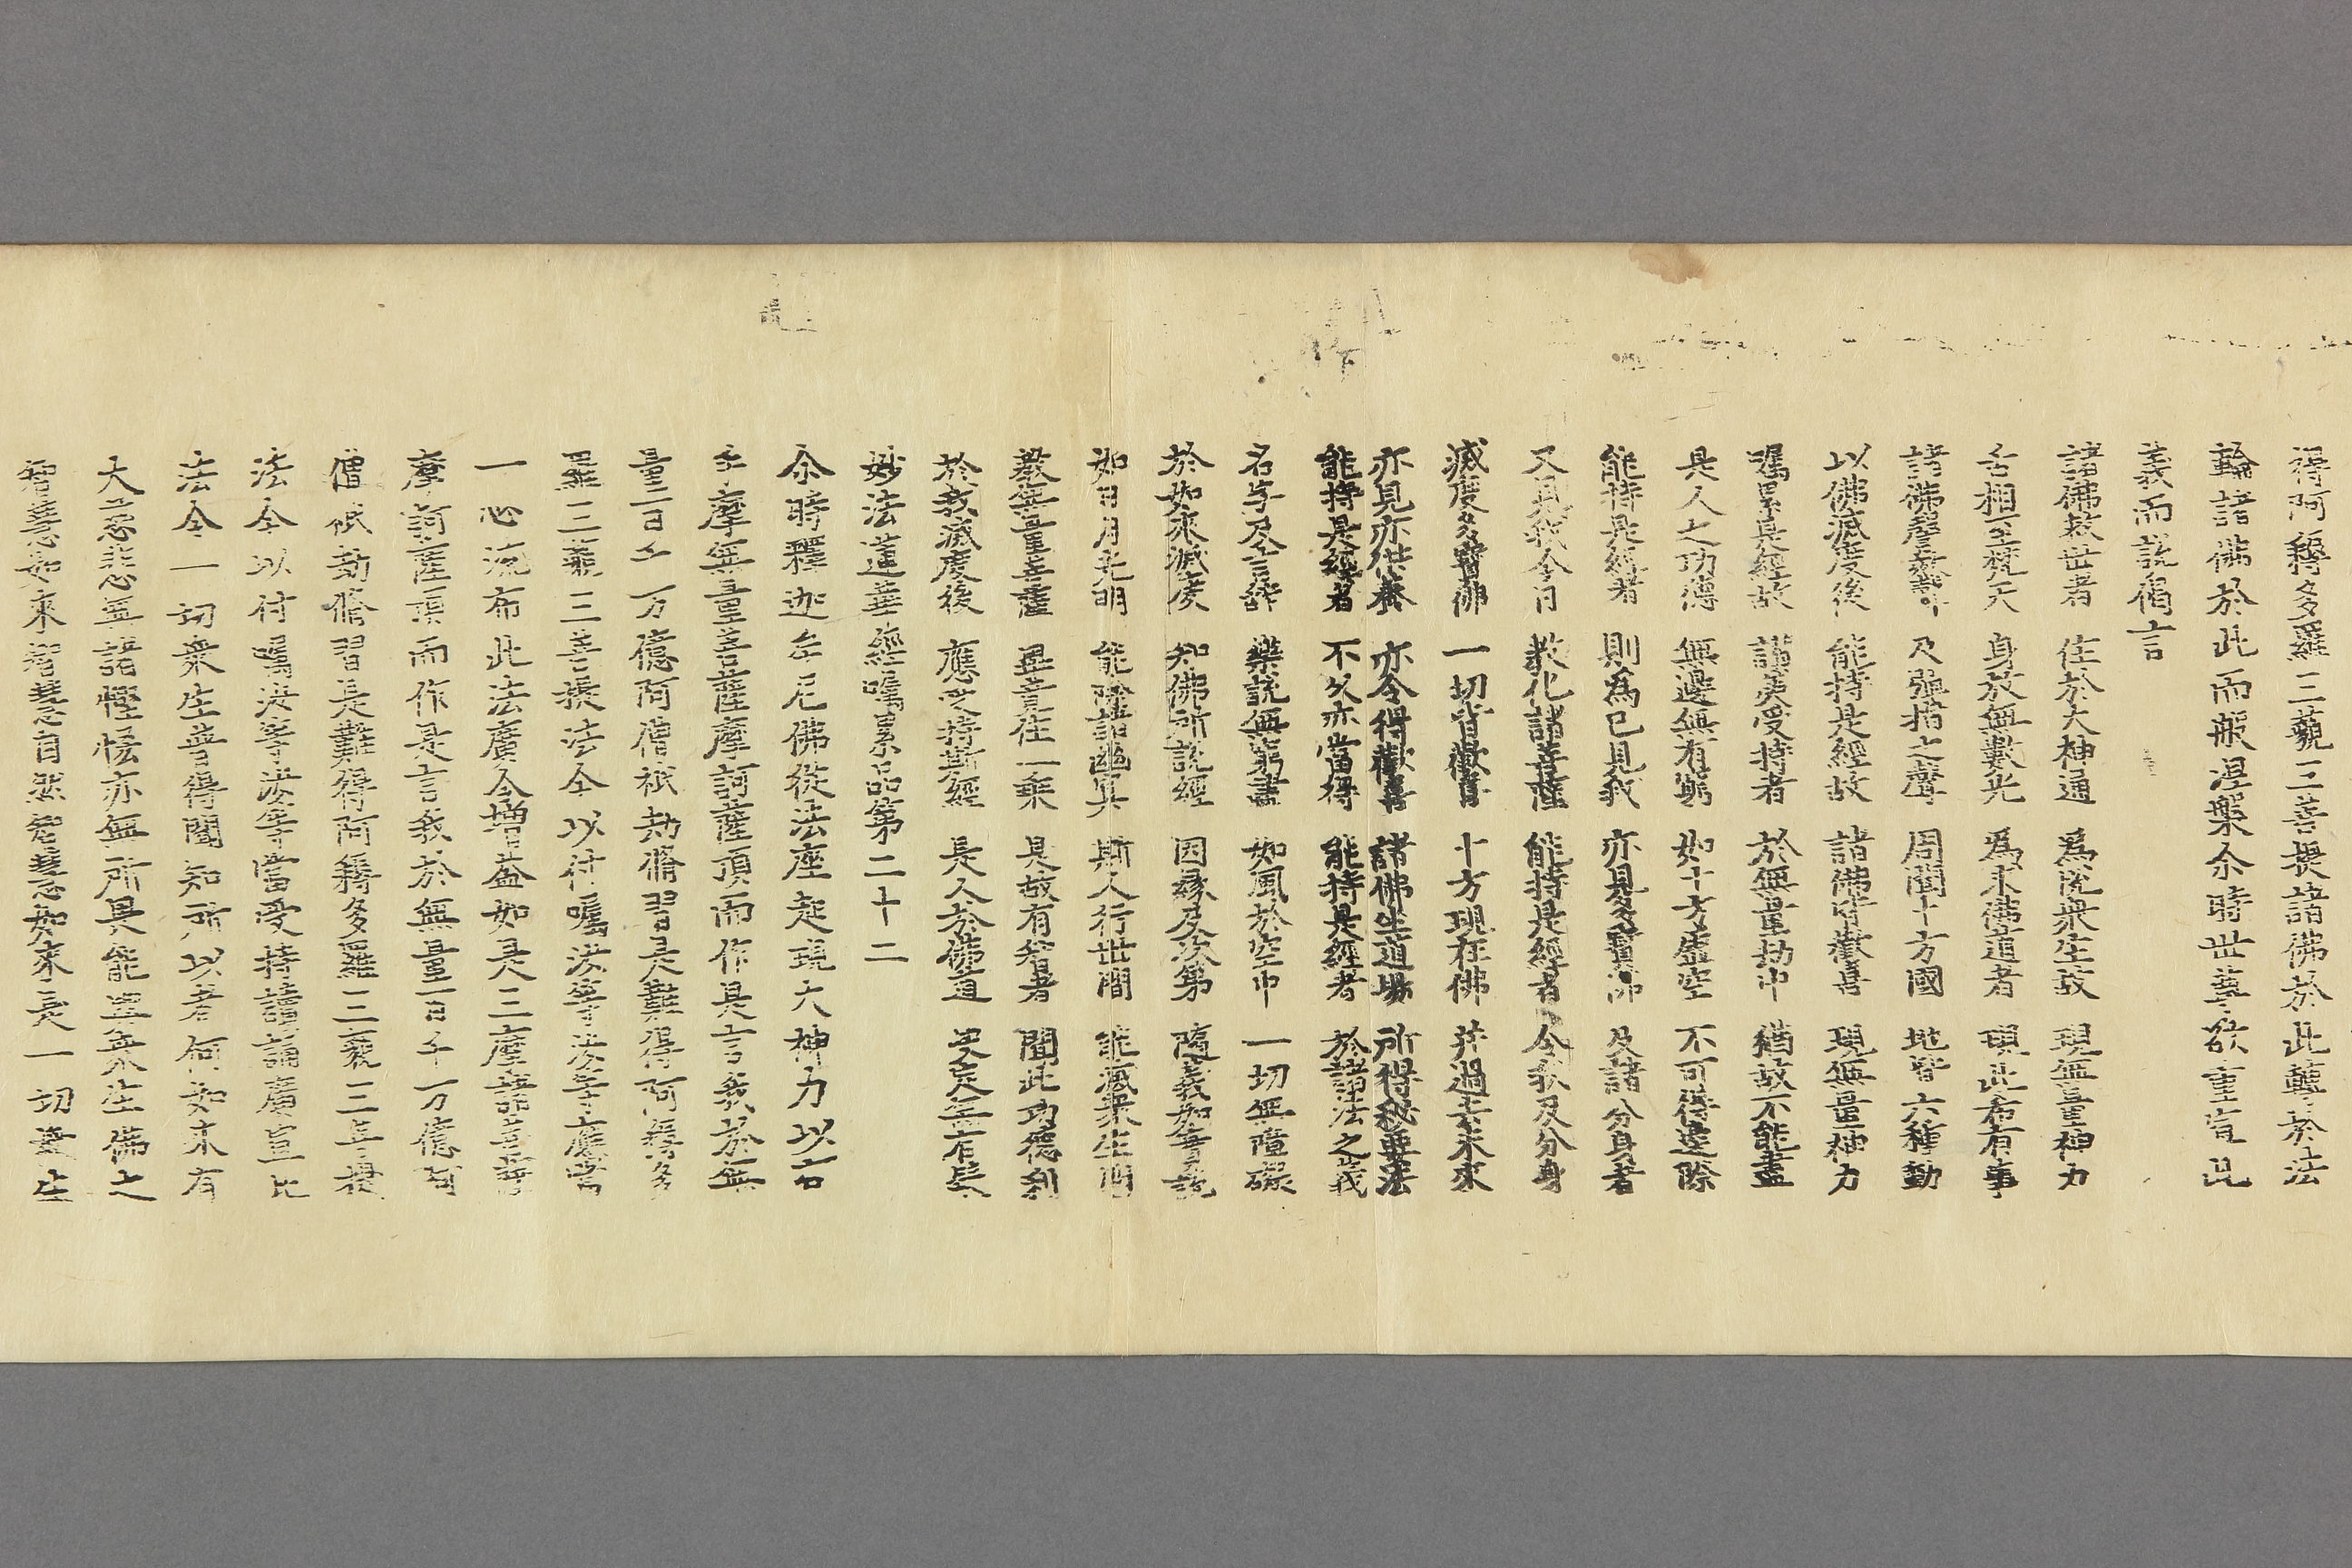 得阿耨多羅三藐三菩提諸佛於此轉於法
輪諸佛於此而般涅槃尒時世尊欲重宣此
義而說偈言
諸佛救世者 住於大神通 爲恱衆生故 現無量神力
舌相至梵天 身放無數光 爲求佛道者 現此希有事
諸佛謦欬聲 及彈指之聲 周聞十方國 地皆六種動
以佛滅度後 能持是經故 諸佛皆歡喜 現無量神力
囑累是經故 讃美受持者 於無量劫中 猶故不能盡
是人之功德 無邊無有窮 如十方虛空 不可得邊際
能持是經者 則爲已見我 亦見多寶佛 及諸分身者
又見我今日 教化諸菩薩 能持是經者 令我及分身
滅度多寶佛 一切皆歡喜 十方現在佛 并過去未來
亦見亦供養 亦令得歡喜 諸佛坐道場 所得秘要法
能持是經者 不久亦當得 能持是經者 於諸法之義
名字及言辭 樂說無窮盡 如風於空中 一切無障礙
於如來滅度 知佛所說經 因縁及次第 隨義如實說
如日月光明 能除諸幽冥 斯人行世間 能滅衆生闇
教無量菩薩 畢竟住一乘 是故有智者 聞此功德利
於我滅度後 應受持斯經 是人於佛道 決定無有疑
妙法蓮華經囑累品第二十二
尒時釋迦牟尼佛從法座起現大神力以右
手摩無量菩薩摩訶薩頂而作是言我於無
量百千万億阿僧祇劫脩習是難得阿耨多
羅三藐三菩提法今以付囑汝等汝等應當
一心流布此法廣令增益如是三摩諸菩薩
摩訶薩頂而作是言我於無量百千万億阿
僧祇劫脩習是難得阿耨多羅三藐三菩提
法今以付囑汝等汝等當受持讀誦廣宣此
法令一切衆生普得聞知所以者何如來有
大慈悲無諸慳悋亦無所畏能與衆生佛之
智慧如來智慧自然智慧如來是一切衆生